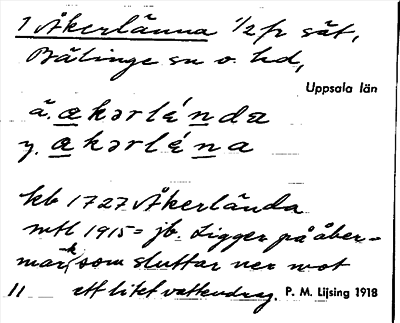 1 Åkerlänna 1/2 fr sät,
Bälinge sn o. hd,
Uppsala län
ä. akərlénda
y. akərléna
kb 1727 Åkerlända
mtl 1915 = jb. Ligger på åker-
mark, som sluttar ner mot
11 ett litet vattendrag. P. M. Lijsing 1918